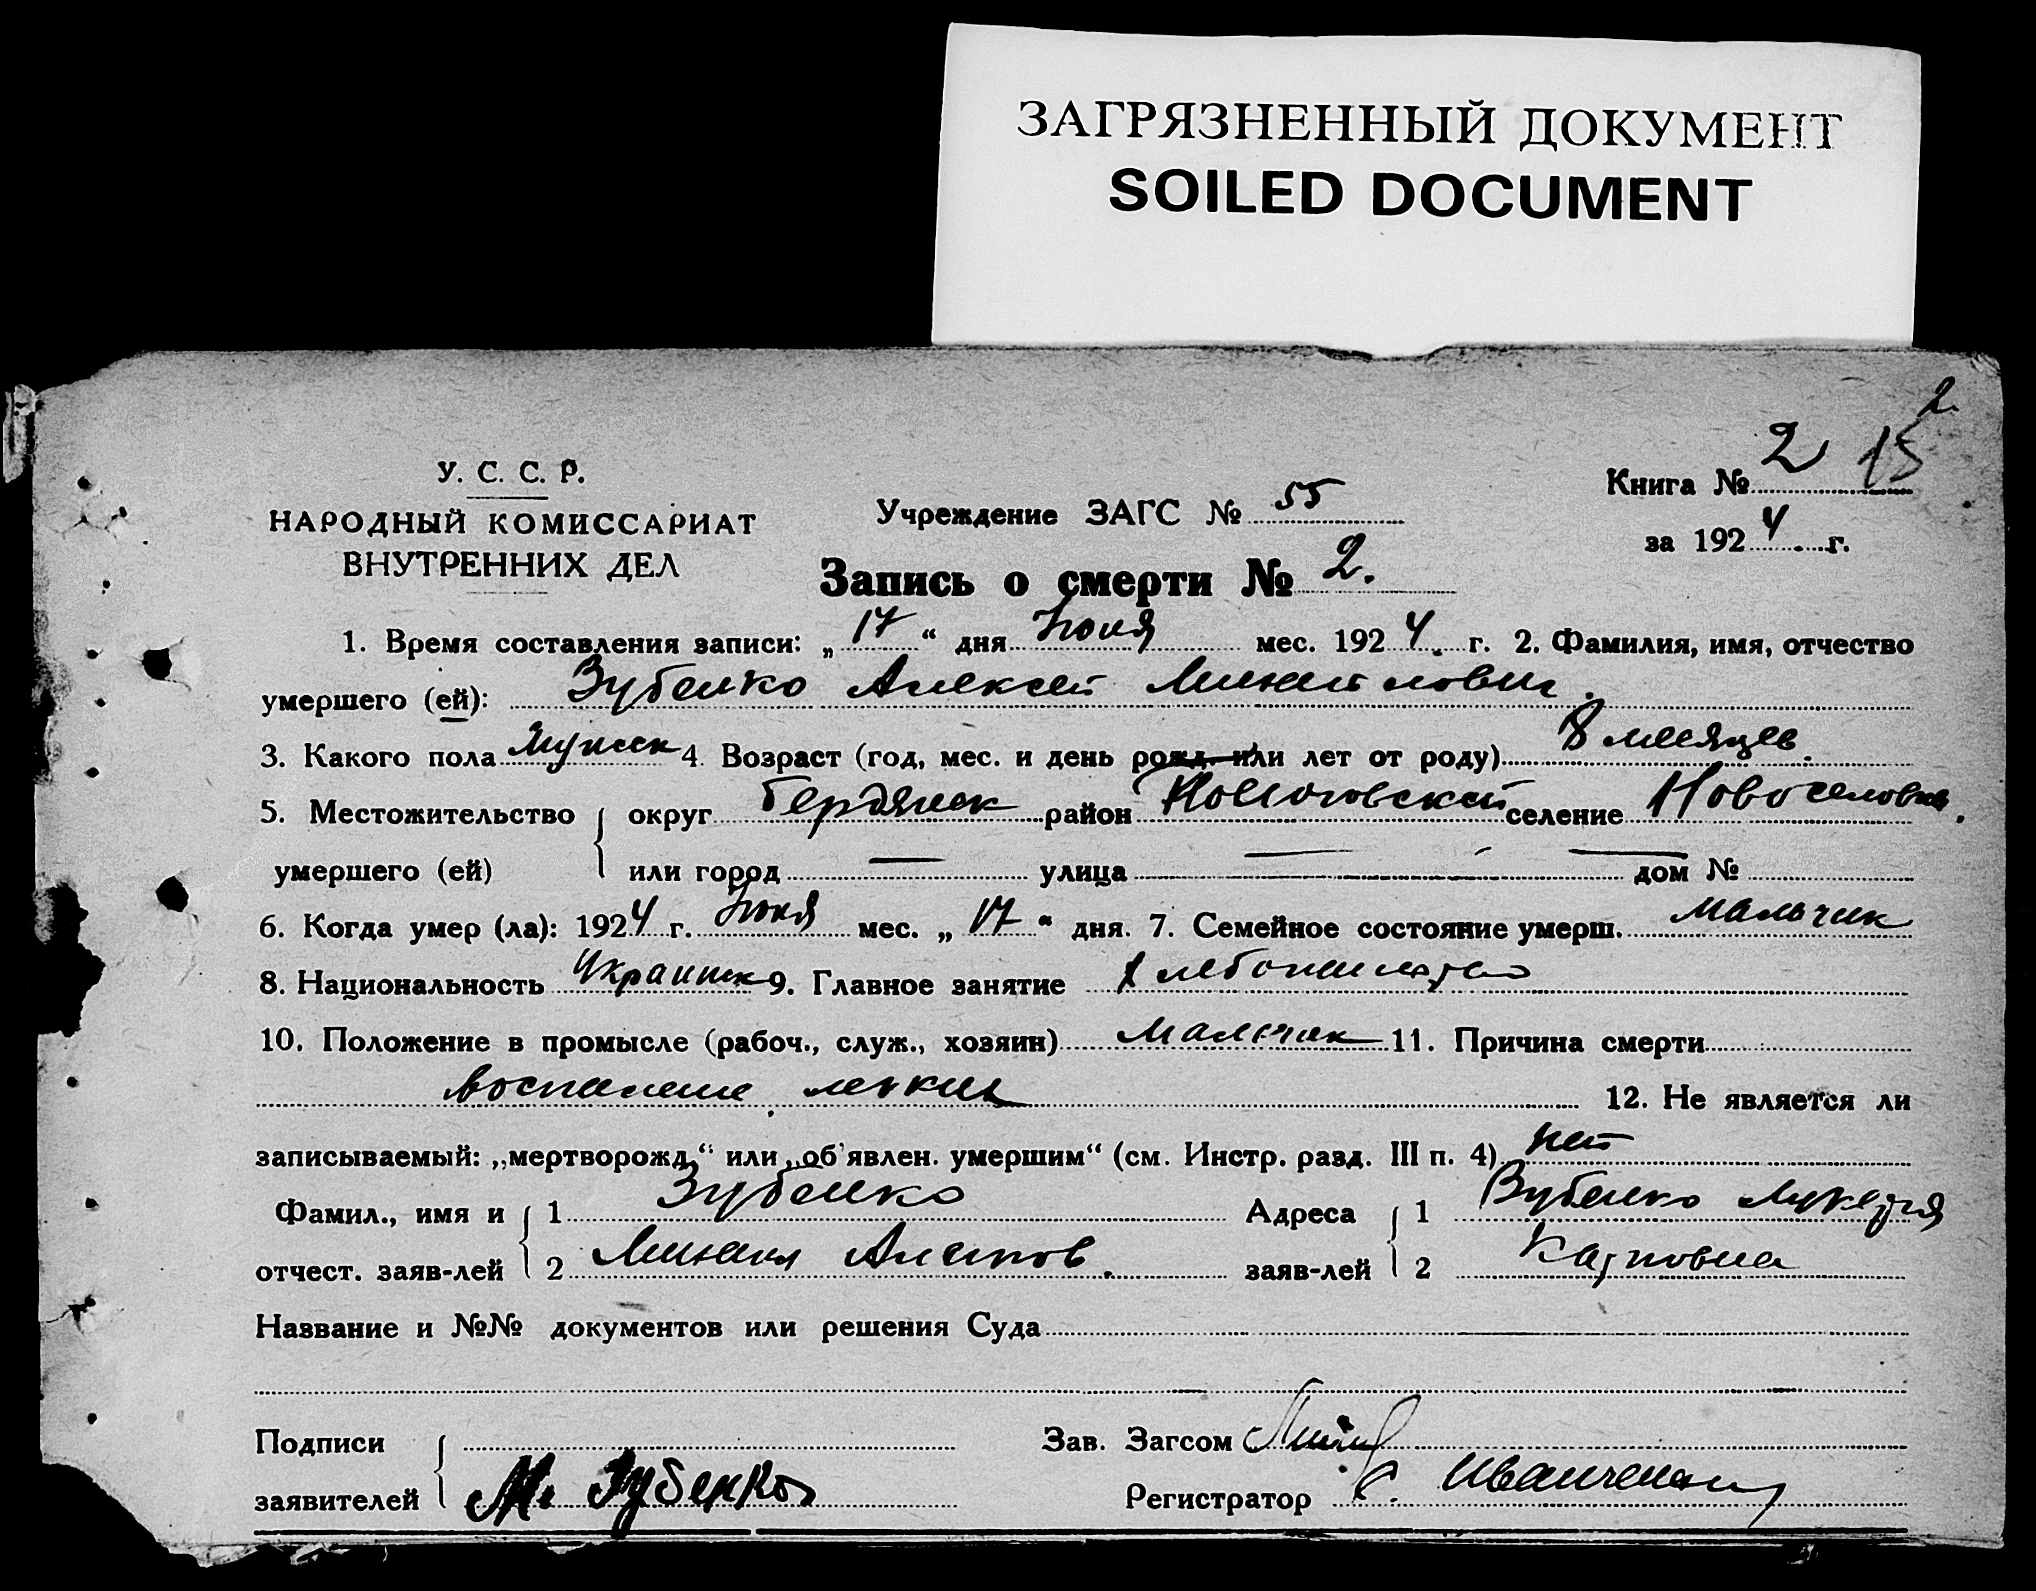 ЗАГРЯЗНЕННЫЙ ДОКУМЕНТ
SOILED DOCUMENT
2.
У. С. С. Р.
НАРОДНЫЙ КОМИССАРИАТ
ВНУТРЕННИХ ДЕЛ
Учреждение ЗАГС № 55
Книга № 2 15
за 1924 г.
Запись о смерти № 2.
1. Время составления записи: „17“ дня Июня мес. 1924 г. 2. Фамилия, имя, отчество
умершего (ей): Зубенко Алексей Михайлович.
3. Какого пола мужск 4. Возраст (год, мес. и день рожд. или лет от роду) 8 месяцев.
5. Местожительство округ Бердянск район селение Новоселовка.
умершего (ей) или город — улица — дом №
6. Когда умер (ла): 1924 г. Июня мес. „17“ дня. 7. Семейное состояние умерш. мальчик
8. Национальность Украинск 9. Главное занятие хлебопашество
10. Положение в промысле (рабоч., служ., хозяин) мальчик 11. Причина смерти
воспаление легких 12. Не является ли
записываемый: „мертворожд.“ или „об'явлен. умершим“ (см. Инстр. разд. III п. 4) нет
Фамил., имя и 1 Зубенко Адреса 1 Зубенко Лукерия
отчест. заяв-лей 2 Михаил заяв-лей 2 Карповна
Название и №№ документов или решения Суда
Подписи Зав. Загсом
заявителей М. Зубенко Регистратор